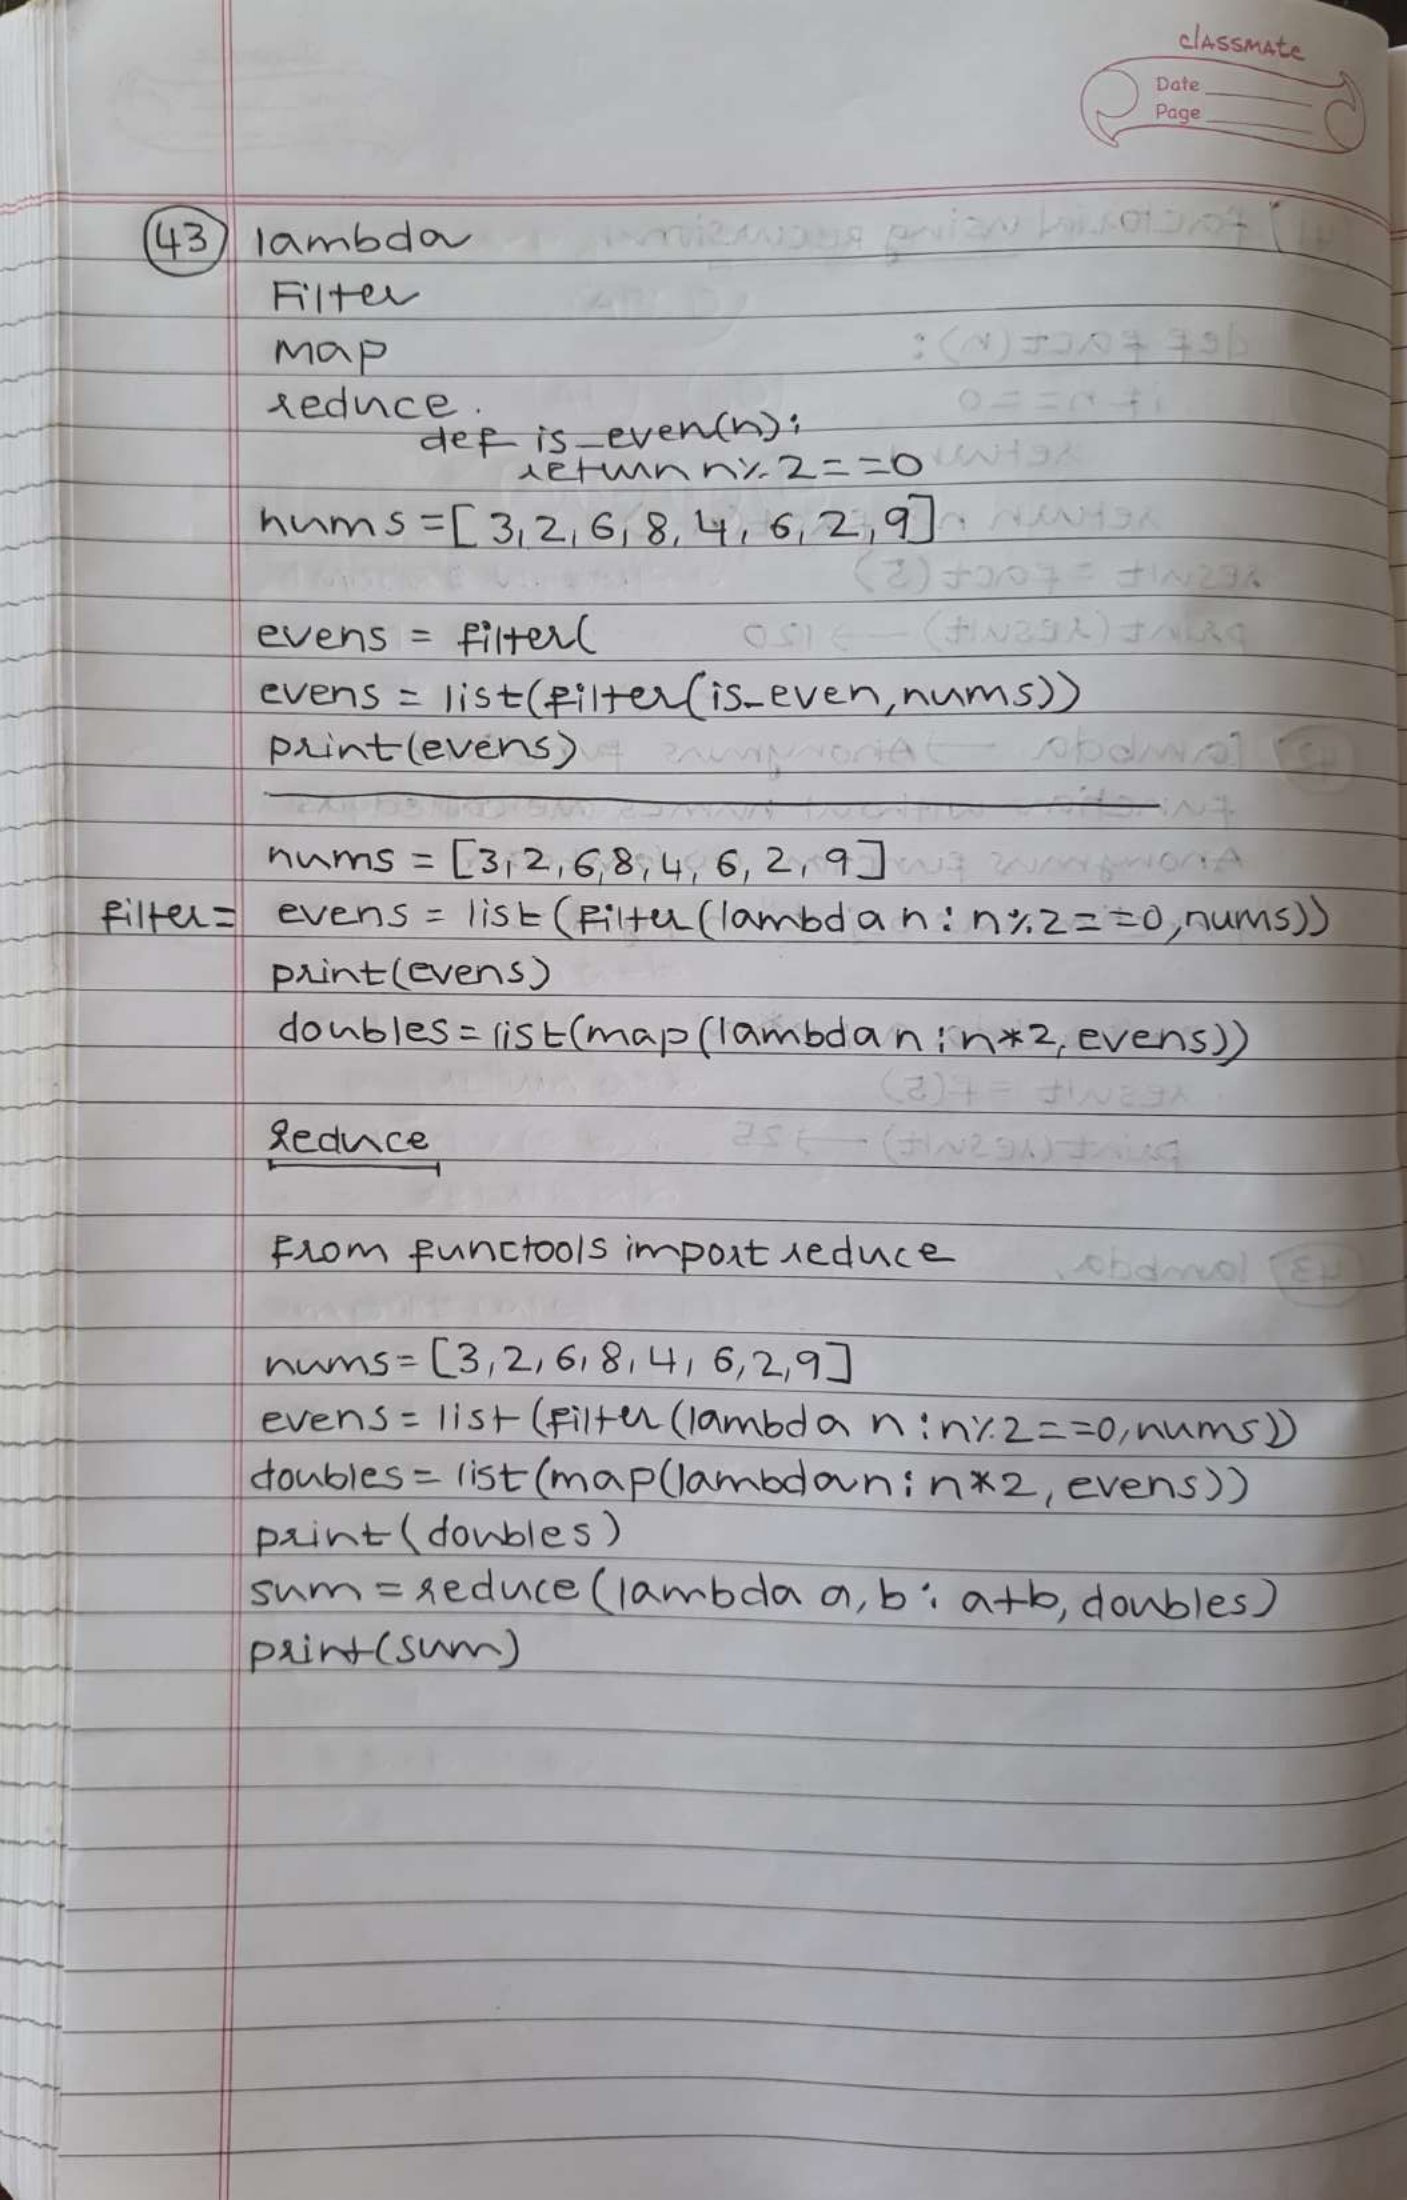 classmate
Date
Page
43 lambda
Filter
map
reduce.
def is_even(n):
return n%2==0
nums=[3,2,6,8,4,6,2,9]
evens = filter(
evens = list(filter(is_even,nums))
print(evens)
nums = [3,2,6,8,4,6,2,9]
filter= evens = list(filter(lambda n:n%2==0,nums))
print(evens)
doubles=list(map(lambda n:n*2,evens))
Reduce
from functools import reduce
nums=[3,2,6,8,4,6,2,9]
evens=list(filter(lambda n:n%2==0,nums))
doubles=list(map(lambda n:n*2,evens))
print(doubles)
sum=reduce(lambda a,b: a+b,doubles)
print(sum)